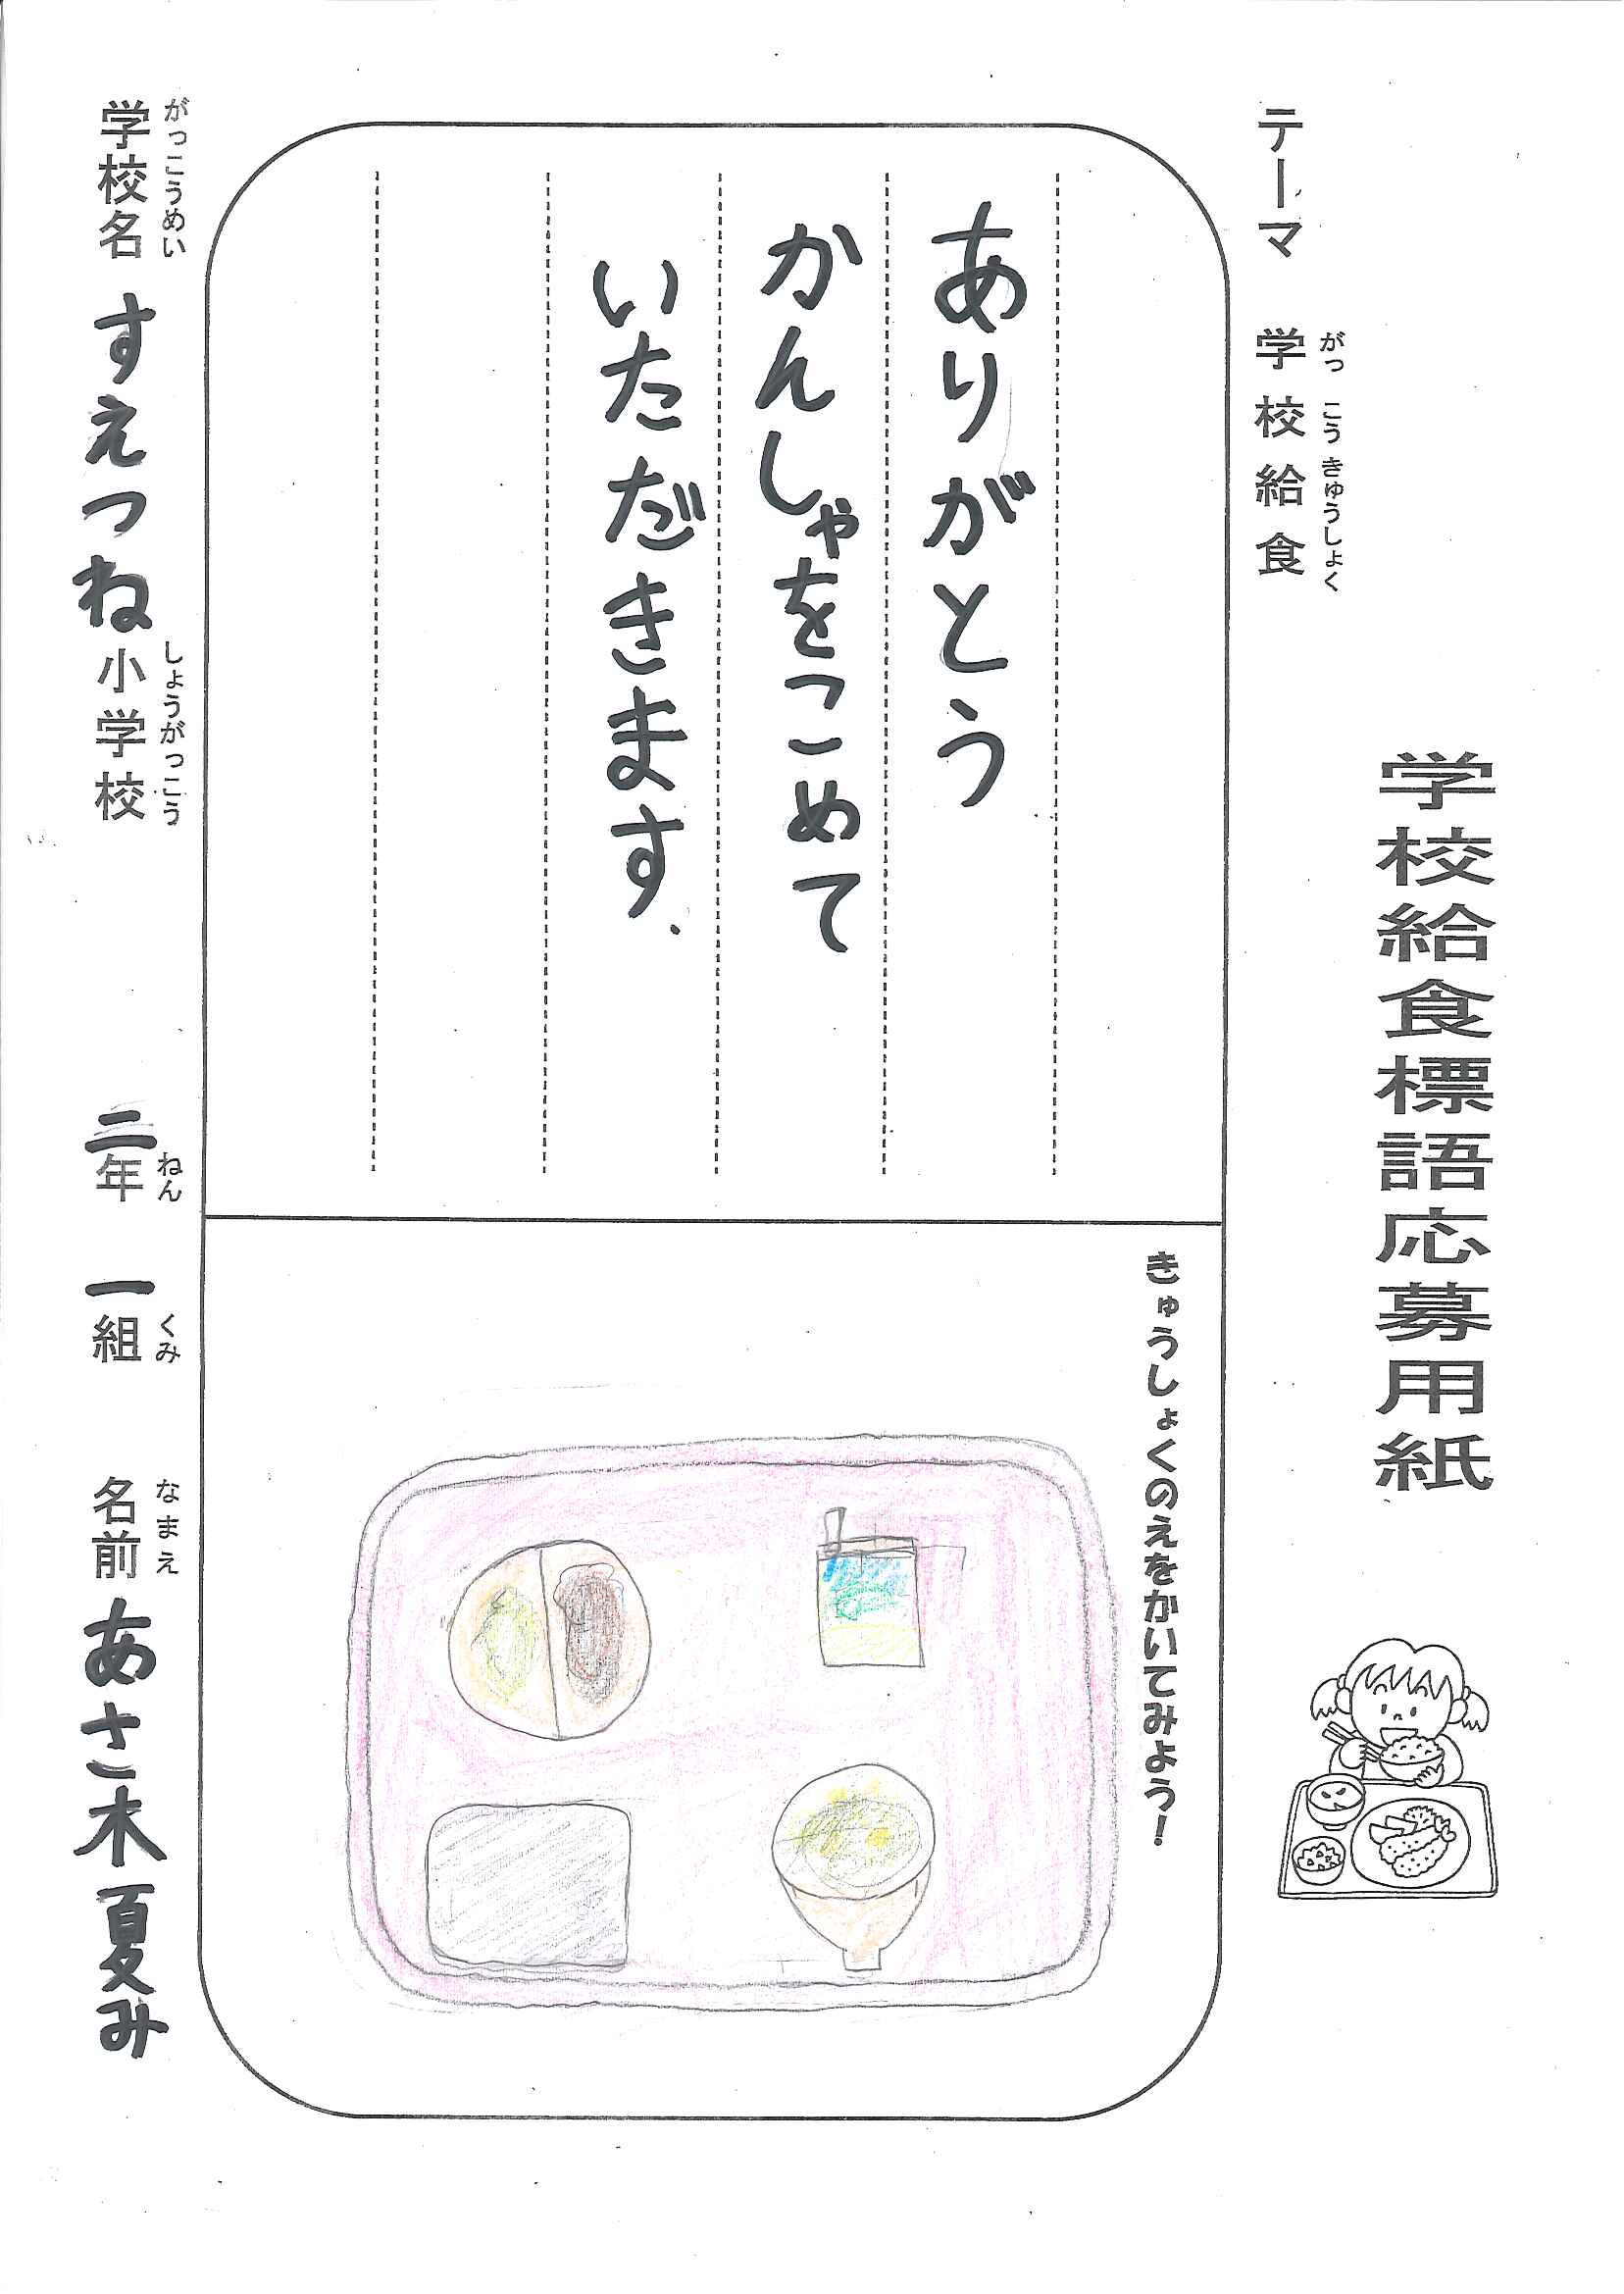 学校給食標語応募用紙
テーマ 学校給食
がっ こう きゅうしょく
ありがとう
かんしゃをこめて
いただきます
きゅうしょくのえをかいてみよう!
がっこうめい しょうがっこう ねん くみ なまえ
学校名 すえつね小学校 二年 一組 名前 あさ木夏み